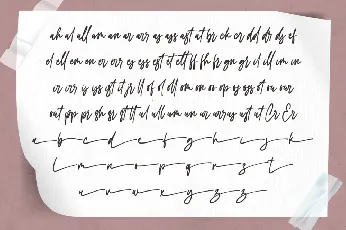 ah al all am an ar arr as ass ast at br ck cr dd dr ds ef
el ell em en er err es ess est et ett ff fh fr gn gr il ill im in
ir irr is iss ist it jr ll of ol oll om on oo op os oss ot ou our
out pp pr sh sr st tt ul ull um un ur urr us ust ut Cr Er
a b c d e f g h i j k
l m n o p q r s t
u v w x y z z